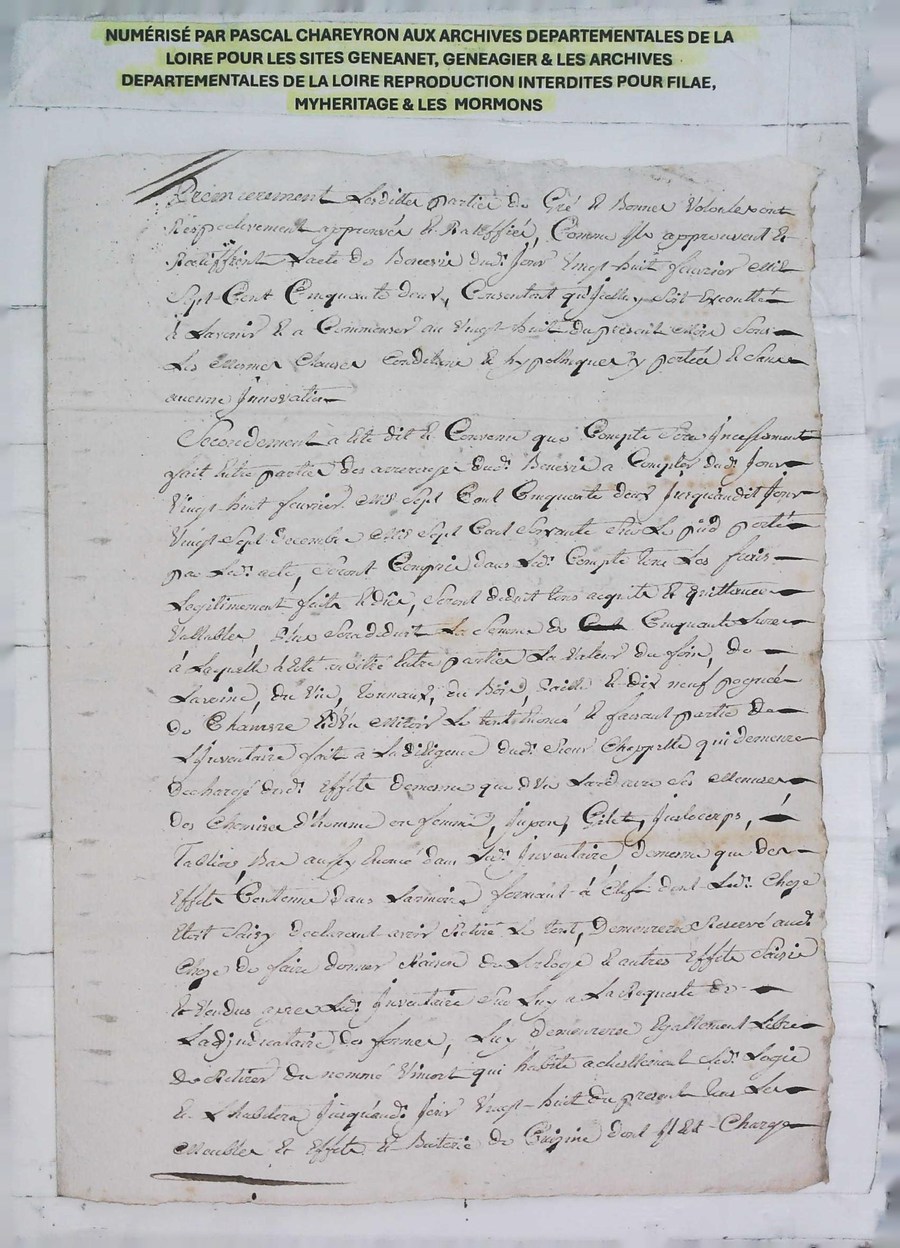 NUMÉRISÉ PAR PASCAL CHAREYRON AUX ARCHIVES DEPARTEMENTALES DE LA
LOIRE POUR LES SITES GENEANET, GENEAGIER & LES ARCHIVES
DEPARTEMENTALES DE LA LOIRE REPRODUCTION INTERDITES POUR FILAE,
MYHERITAGE & LES MORMONS
Premierement Lesdittes partie de Gré et Bonnes Volonté ont
Respectivement approuvée et Ratiffiée, Comme Ils approuvent et
Ratiffient Lacte de dud: Jour Vingt huit fevrier Mil
Sept Cent Cinquante deux, Consentent qu'Jcelluy Soit Executté
à Lavenir et a Commenser au Vingt huit du present Mois Sous
Les Mesmes Clauses Conditions et hypotheques y portée et Sans
aucune Jnnovation
Secondement a été dit et Convenu que Compte Sera Jncessament
fait Entre partie des arrerages dud: a Compter dud: Jour
Vingt huit fevrier Mil Sept Cent Cinquante deux Jusquaudit Jour
Vingt Sept Decembre Mil Sept Cent Soixante Sur Le pied porté
par Led: acte, Seront Compris dans Led: Compte tous Les frais
Legitimement faits et dûs, Seront deduit tous acquits et Quittances
Vallables Plus Sera deduit La Somme de Cinquante Livres
à Laquelle a été Entre partie La Valeur du foin, de
Lavoine, du Vin, Tonnaux, du Bois, Paille et dix neuf pognée
de Chanvre et d'Un Miroir Le tout Enoncé et faisant partie de
L'Jnventaire fait à La diligence dud: Sieur Chappelle qui demeure
dechargé desd: Effets demesme que d'Un Ses Menures
des Chemises d'homme ou femme, Jupon, Gilet, Justocorps,
Tabliers, Bas aussy Enoncé dans Led: Jnventaire demesme que des
Effets Contenus dans Larmoire fermant à Clef dont Led: Cheze
Etoit Saisy declarant avoir Retiré Le tout, Demeurera Reservé aud:
Cheze de faire donner Raison de Lorloge et autres Effets Saisis
et Vendus apres Led: Jnventaire Sur Luy a La Requeste de
Ladjudicataire des fermes, Luy demeurera Egallement Libre
de Retirer du nommé Vincent qui habite actuellement Led: Logis
et L'habitera Jusquaud: Jour Vingt-huit du present tous Les
Meubles et Effets et Batterie de Cuizine dont Jl Est Charge